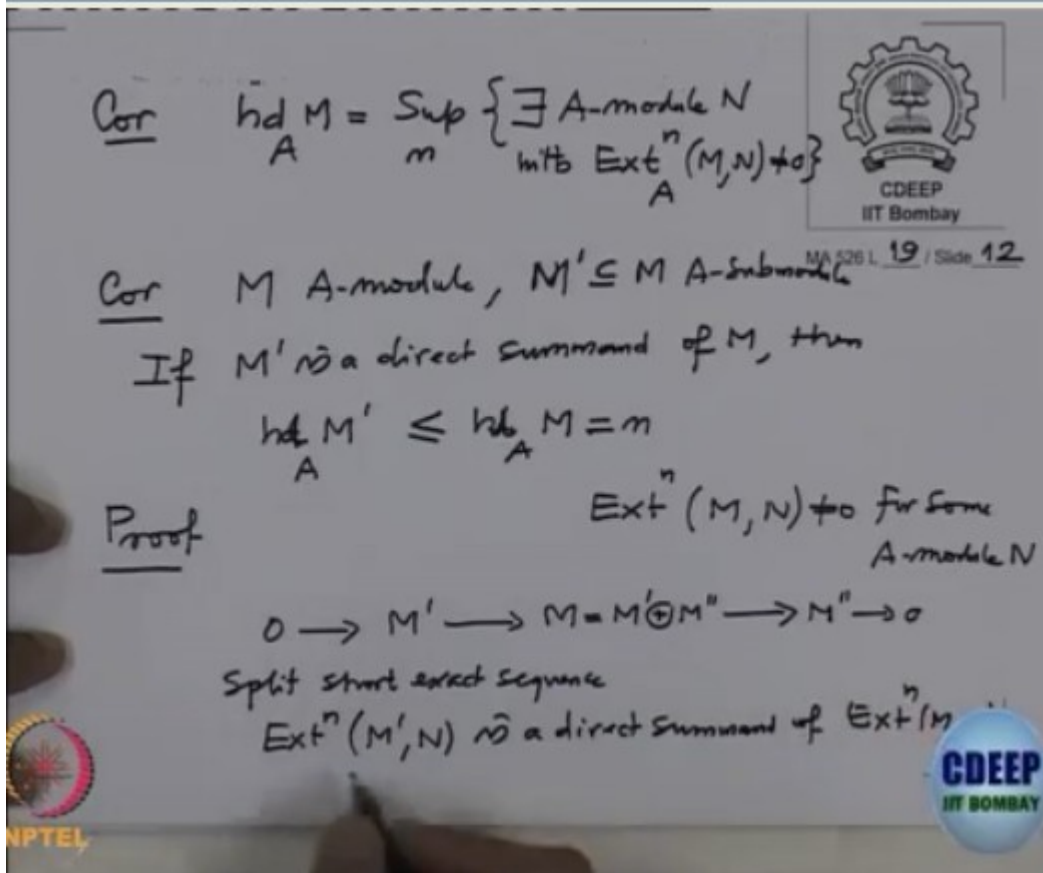 Cor hd_A M = Sup_n {∃ A-module N
with Ext^n_A (M,N) ≠ 0}
CDEEP
IIT Bombay
MA 526 L 19 / Slide 12
Cor M A-module, M' ⊆ M A-submodule
If M' is a direct summand of M, then
hd_A M' ≤ hd_A M = n
Proof Ext^n (M, N) ≠ 0 for some
A-module N
0 → M' → M = M' ⊕ M'' → M'' → 0
Split short exact sequence
Ext^n (M', N) is a direct summand of Ext^n (M
CDEEP
IIT BOMBAY
NPTEL